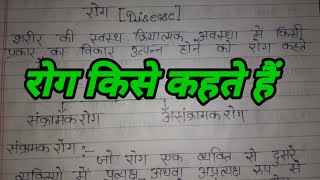 रोग [Disease]
शरीर की स्वस्थ क्रियात्मक अवस्था में किसी
प्रकार का विकार उत्पन्न होने को रोग कहते
रोग किसे कहते हैं
संक्रामक रोग असंक्रामक रोग
संक्रामक रोग :- जो रोग एक व्यक्ति से दूसरे
व्यक्तियों में प्रत्यक्ष अथवा अप्रत्यक्ष रूप से